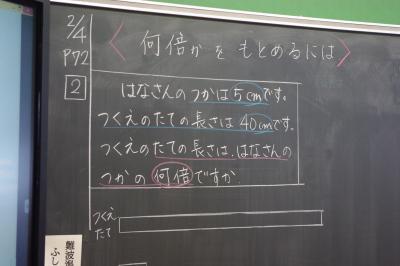 2/4
P72
<何倍かをもとめるには>
2
はなさんのつかは5cmです。
つくえのたての長さは40cmです。
つくえのたての長さは、はなさんの
つかの何倍ですか
つくえ
たて
難波
ふし